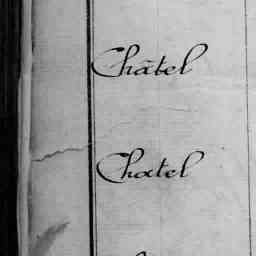 Châtel
Chatel